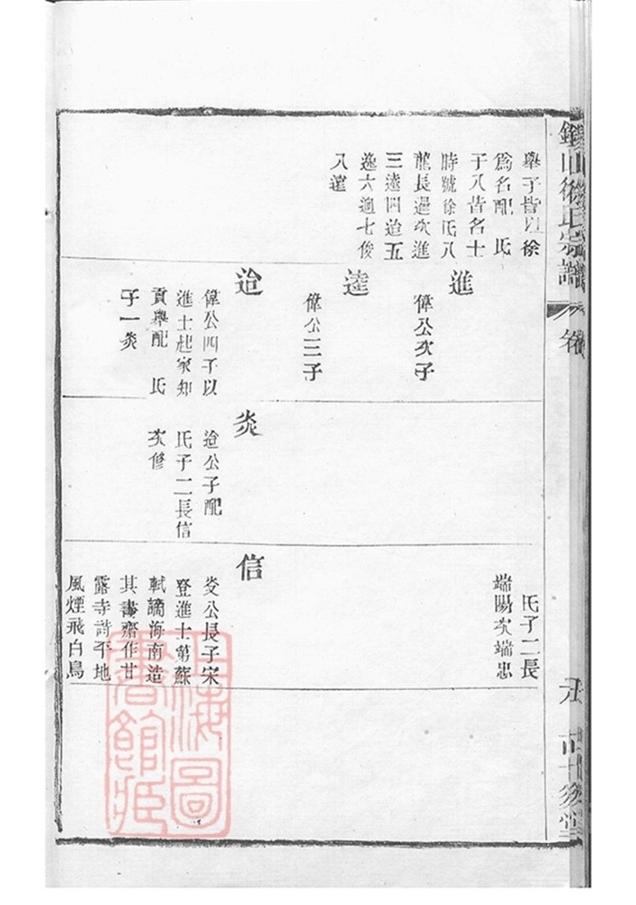 舉子皆以徐
爲名配　氏
子八皆名士
時號徐氏八
龍長過次進
三逵四迨五
逸六適七俊
八遵
進
偉公次子
逵
偉公三子
迨
偉公四子以
進士起家知
貢舉配　氏
子一炎
炎
迨公子配
氏子二長信
次修
氏子二長
端陽次端忠
信
炎公長子宋
登進士第蘇
軾謫海南造
其書齋作甘
露寺詩平地
風煙飛白鳥
上海圖
書館藏
徐氏宗譜
卷